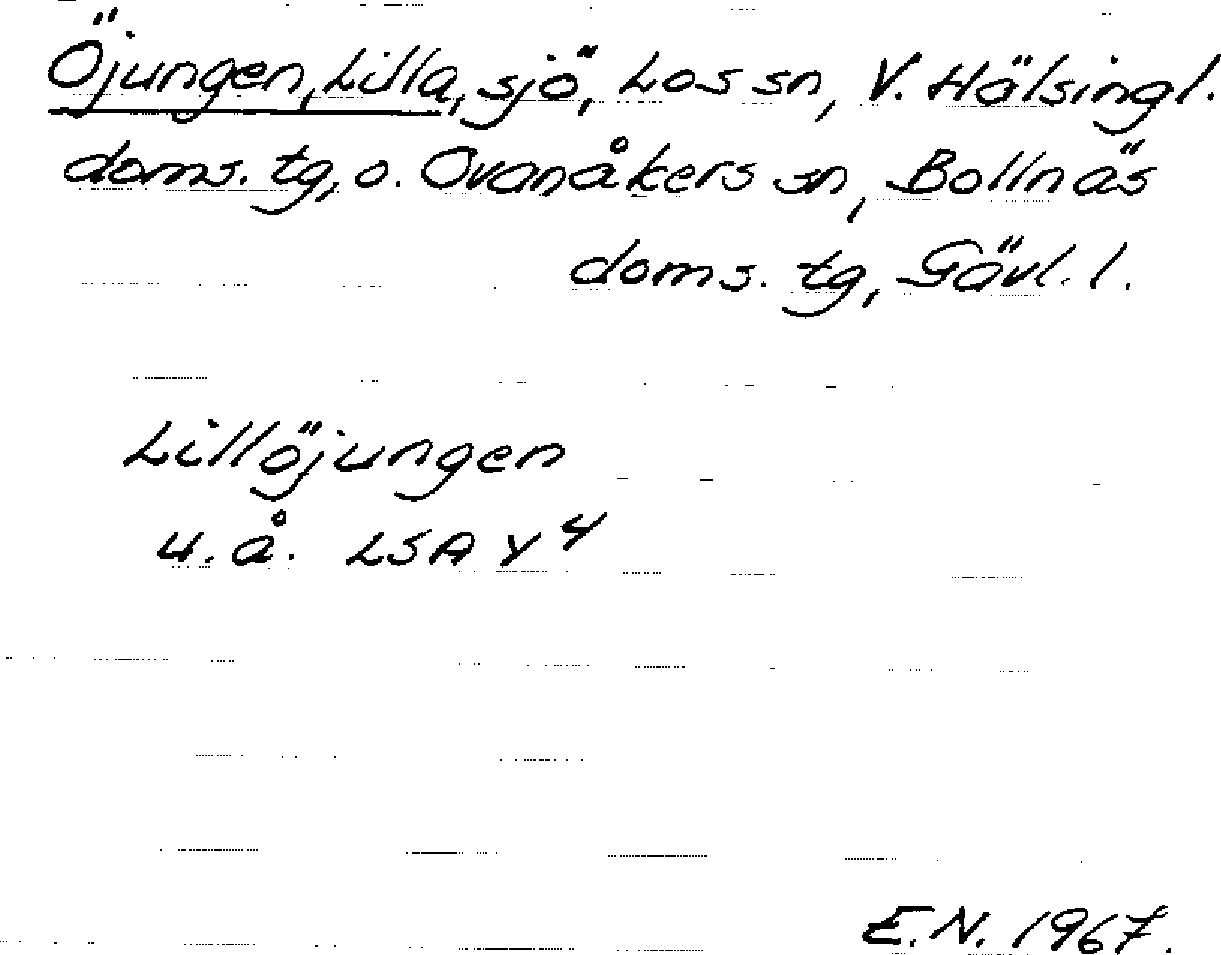 Öjungen, Lilla, sjö, Los sn, V. Hälsingl.
doms. tg, o. Ovanåkers sn, Bollnäs
doms. tg, Gävl. l.
Lillöjungen
u. å. LSA Y 4
E.N. 1967.